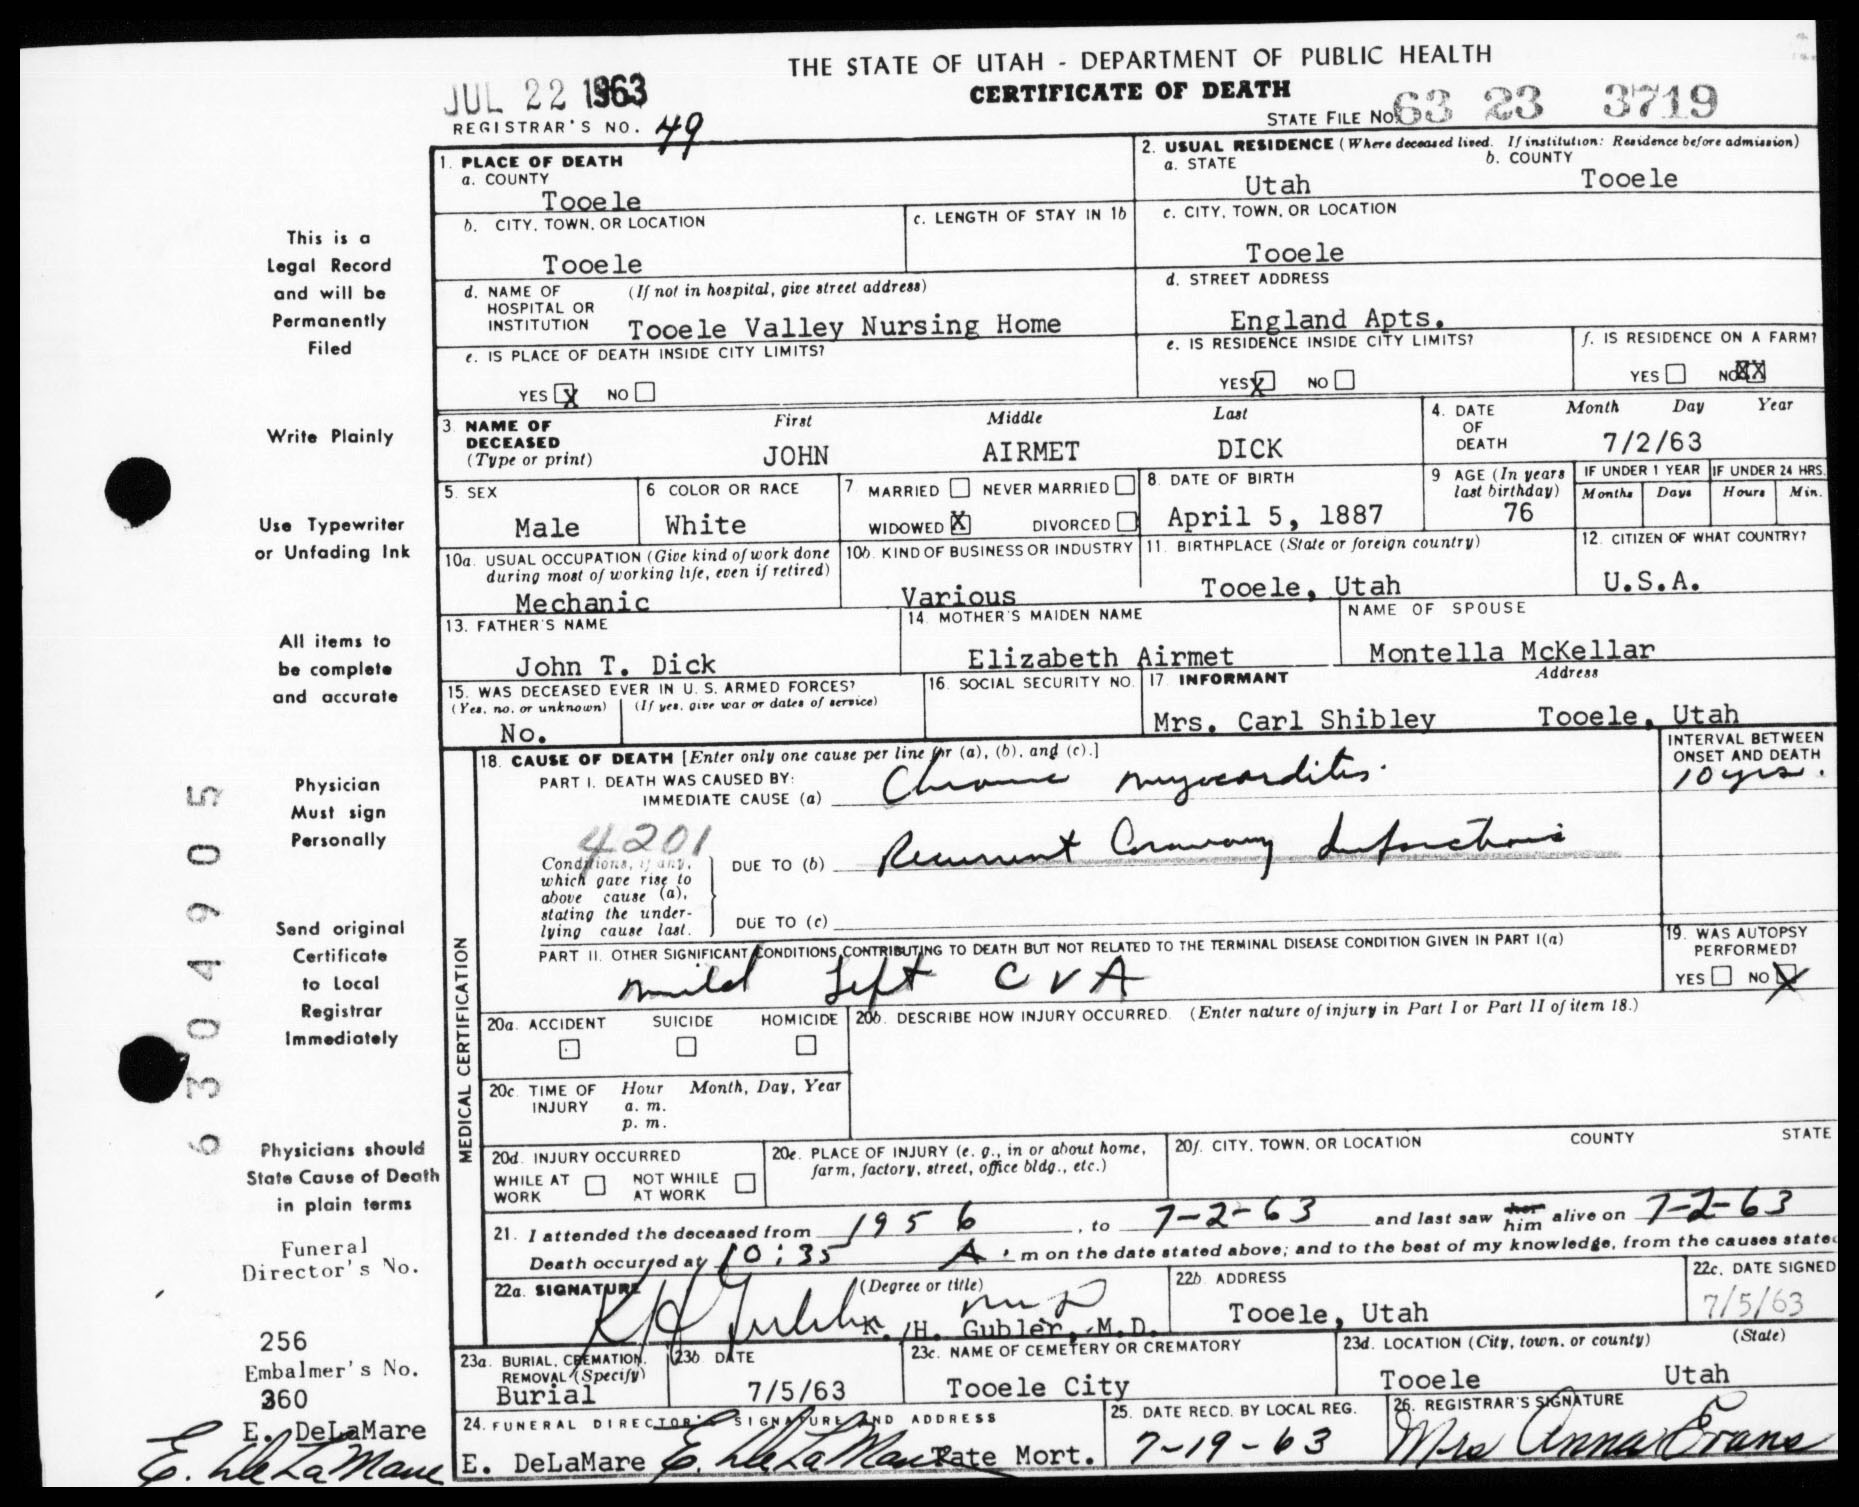 THE STATE OF UTAH - DEPARTMENT OF PUBLIC HEALTH
CERTIFICATE OF DEATH
JUL 22 1963
REGISTRAR'S NO. 49
STATE FILE NO. 63 23 3719
1. PLACE OF DEATH
a. COUNTY
Tooele
2. USUAL RESIDENCE (Where deceased lived. If institution: Residence before admission)
a. STATE b. COUNTY
Utah Tooele
b. CITY, TOWN, OR LOCATION
Tooele
c. LENGTH OF STAY IN 1b
c. CITY, TOWN, OR LOCATION
Tooele
d. NAME OF (If not in hospital, give street address)
HOSPITAL OR
INSTITUTION Tooele Valley Nursing Home
d. STREET ADDRESS
England Apts.
e. IS PLACE OF DEATH INSIDE CITY LIMITS?
YES X NO
e. IS RESIDENCE INSIDE CITY LIMITS?
YES X NO
f. IS RESIDENCE ON A FARM?
YES NO XX
3. NAME OF DECEASED (Type or print)
First Middle Last
JOHN AIRMET DICK
4. DATE OF DEATH
Month Day Year
7/2/63
5. SEX
Male
6 COLOR OR RACE
White
7 MARRIED NEVER MARRIED
WIDOWED X DIVORCED
8. DATE OF BIRTH
April 5, 1887
9 AGE (In years last birthday)
76
IF UNDER 1 YEAR IF UNDER 24 HRS.
Months Days Hours Min.
10a. USUAL OCCUPATION (Give kind of work done
during most of working life, even if retired)
Mechanic
10b. KIND OF BUSINESS OR INDUSTRY
Various
11. BIRTHPLACE (State or foreign country)
Tooele, Utah
12. CITIZEN OF WHAT COUNTRY?
U.S.A.
13. FATHER'S NAME
John T. Dick
14. MOTHER'S MAIDEN NAME
Elizabeth Airmet
NAME OF SPOUSE
Montella McKellar
15. WAS DECEASED EVER IN U. S. ARMED FORCES?
(Yes, no, or unknown) (If yes, give war or dates of service)
No.
16. SOCIAL SECURITY NO.
17. INFORMANT Address
Mrs. Carl Shibley Tooele, Utah
MEDICAL CERTIFICATION
18. CAUSE OF DEATH [Enter only one cause per line for (a), (b), and (c).]
INTERVAL BETWEEN
ONSET AND DEATH
PART I. DEATH WAS CAUSED BY:
IMMEDIATE CAUSE (a) Chronic myocarditis. 10 yrs.
4201
Conditions, if any,
which gave rise to
above cause (a),
stating the under-
lying cause last.
DUE TO (b) Recurrent Coronary Infarctions
DUE TO (c)
PART II. OTHER SIGNIFICANT CONDITIONS CONTRIBUTING TO DEATH BUT NOT RELATED TO THE TERMINAL DISEASE CONDITION GIVEN IN PART I(a)
mild left CVA
19. WAS AUTOPSY
PERFORMED?
YES NO X
20a. ACCIDENT SUICIDE HOMICIDE
20b. DESCRIBE HOW INJURY OCCURRED. (Enter nature of injury in Part I or Part II of item 18.)
20c. TIME OF INJURY Hour Month, Day, Year
a. m.
p. m.
20d. INJURY OCCURRED
WHILE AT WORK NOT WHILE AT WORK
20e. PLACE OF INJURY (e. g., in or about home,
farm, factory, street, office bldg., etc.)
20f. CITY, TOWN, OR LOCATION COUNTY STATE
21. I attended the deceased from 1956, to 7-2-63 and last saw her him alive on 7-2-63
Death occurred at 10:35 A. m on the date stated above; and to the best of my knowledge, from the causes stated
22a. SIGNATURE (Degree or title)
K H Gubler MD
K. H. Gubler, M.D.
22b. ADDRESS
Tooele, Utah
22c. DATE SIGNED
7/5/63
23a. BURIAL, CREMATION, REMOVAL (Specify)
Burial
23b. DATE
7/5/63
23c. NAME OF CEMETERY OR CREMATORY
Tooele City
23d. LOCATION (City, town, or county) (State)
Tooele Utah
24. FUNERAL DIRECTOR'S SIGNATURE AND ADDRESS
E. DeLaMare E. DeLaMare Tate Mort.
25. DATE RECD. BY LOCAL REG.
7-19-63
26. REGISTRAR'S SIGNATURE
Mrs Anna Evans
This is a
Legal Record
and will be
Permanently
Filed
Write Plainly
Use Typewriter
or Unfading Ink
All items to
be complete
and accurate
Physician
Must sign
Personally
Send original
Certificate
to Local
Registrar
Immediately
Physicians should
State Cause of Death
in plain terms
Funeral
Director's No.
256
Embalmer's No.
360
E. DeLaMare
E. DeLaMare
6304905